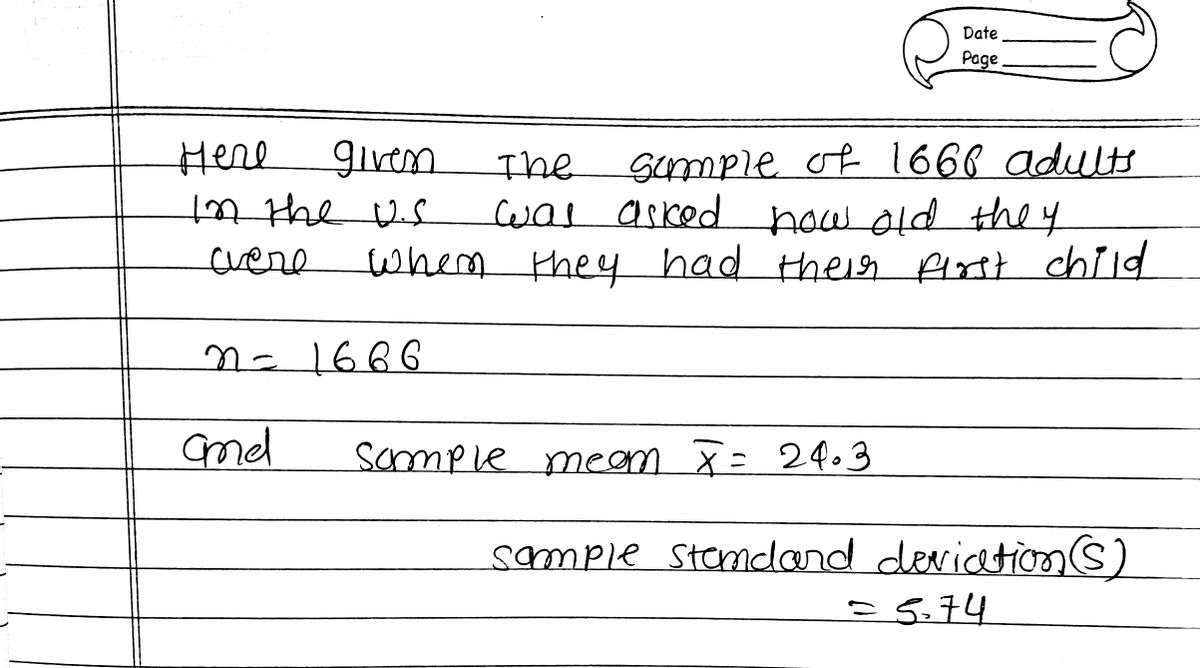 Date
Page
Here given The sample of 1666 adults
in the U.S was asked how old they
were when they had their first child
n = 1666
and sample mean x̄ = 24.3
sample standard deviation(S)
= 5.74